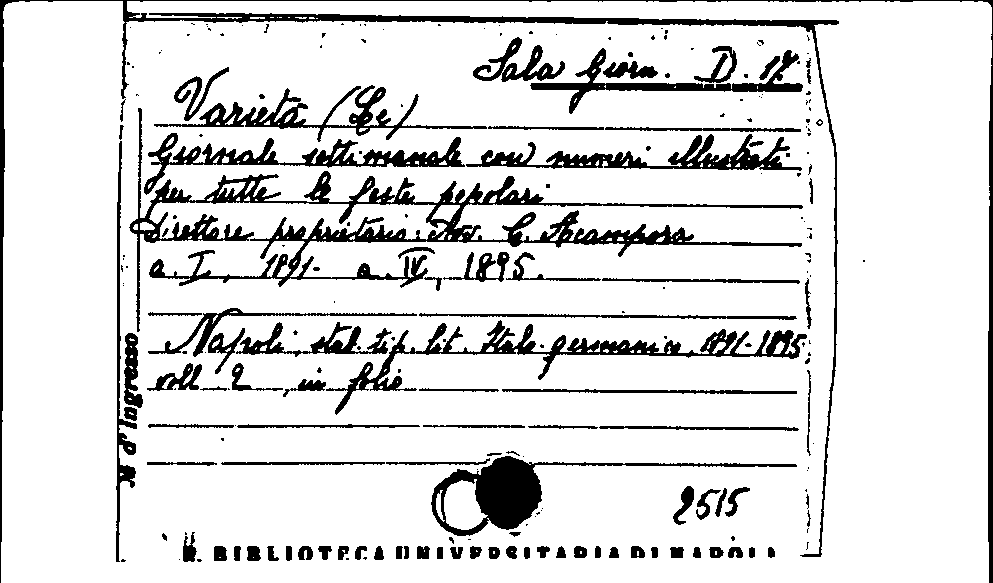 Sala Giorn. D. 17
Varietà (Le)
Giornale settimanale con numeri illustrati
per tutte le feste popolari
Direttore proprietario: Avv. G. Acampora
a. I, 1891- a. IV, 1895.
Napoli, stab. tip. lit. Italo-germanico, 1891-1895
voll 2, in folio
N. d'Ingresso
2515
R. BIBLIOTECA UNIVERSITARIA DI NAPOLI